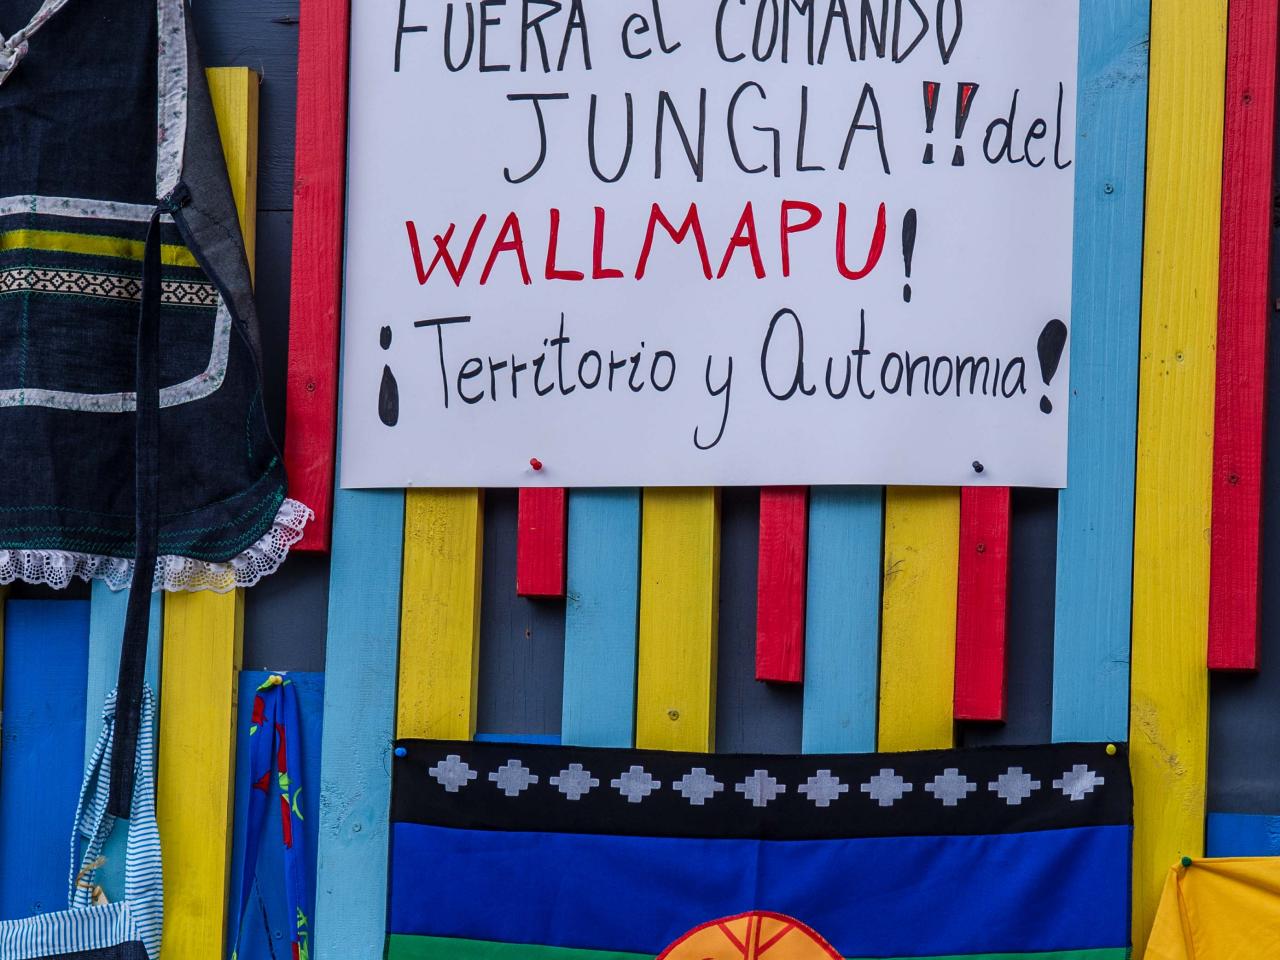 FUERA el COMANDO
JUNGLA !! del
WALLMAPU!
¡Territorio y Autonomıa!